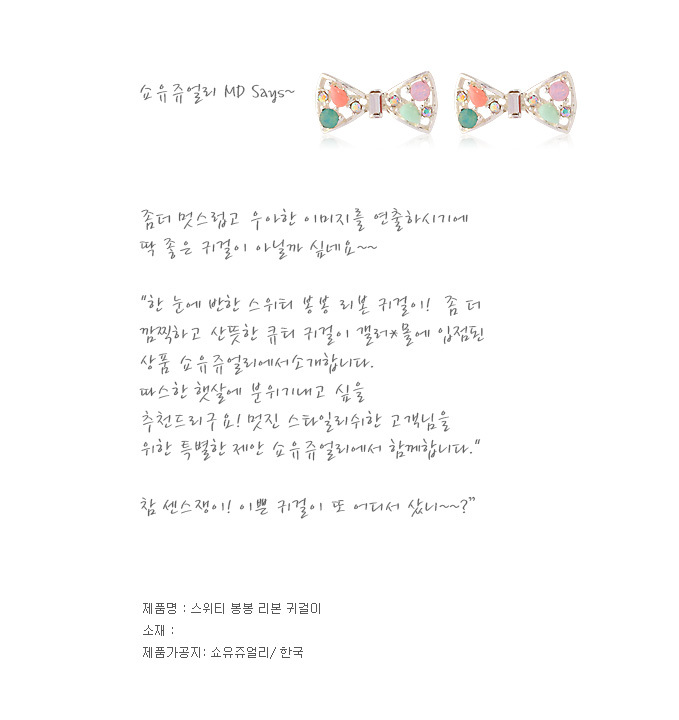 쇼유쥬얼리 MD Says~
좀더 멋스럽고 우아한 이미지를 연출하시기에
딱 좋은 귀걸이 아닐까 싶네요~~
"한 눈에 반한 스위티 봉봉 리본 귀걸이! 좀 더
깜찍하고 산뜻한 큐티 귀걸이 갤러*몰에 입점된
상품 쇼유쥬얼리에서소개합니다.
따스한 햇살에 분위기내고 싶을
추천드리구요! 멋진 스타일리쉬한 고객님을
위한 특별한 제안 쇼유쥬얼리에서 함께합니다."
참 센스쟁이! 이쁜 귀걸이 또 어디서 샀니~~?"
제품명 : 스위티 봉봉 리본 귀걸이
소재 :
제품가공지: 쇼유쥬얼리/ 한국